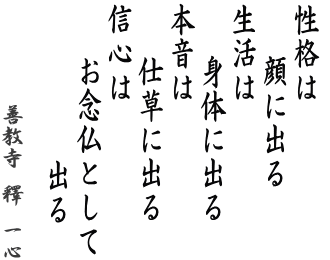 性格は
顔に出る
生活は
身体に出る
本音は
仕草に出る
信心は
お念仏として
出る
善教寺 釋 一心